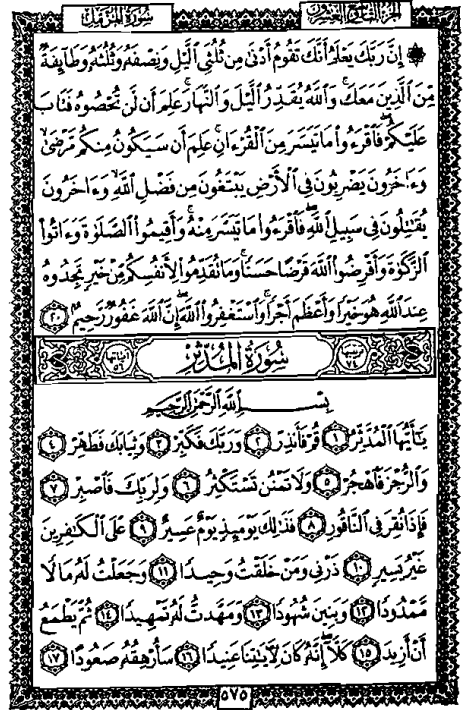 الجزء التاسع والعشرون
سورة المزمل
۞ إِنَّ رَبَّكَ يَعْلَمُ أَنَّكَ تَقُومُ أَدْنَىٰ مِن ثُلُثَيِ ٱلَّيْلِ وَنِصْفَهُۥ وَثُلُثَهُۥ وَطَآئِفَةٌ
مِّنَ ٱلَّذِينَ مَعَكَ ۚ وَٱللَّهُ يُقَدِّرُ ٱلَّيْلَ وَٱلنَّهَارَ ۚ عَلِمَ أَن لَّن تُحْصُوهُ فَتَابَ
عَلَيْكُمْ ۖ فَٱقْرَءُوا۟ مَا تَيَسَّرَ مِنَ ٱلْقُرْءَانِ ۚ عَلِمَ أَن سَيَكُونُ مِنكُم مَّرْضَىٰ ۙ
وَءَاخَرُونَ يَضْرِبُونَ فِى ٱلْأَرْضِ يَبْتَغُونَ مِن فَضْلِ ٱللَّهِ ۙ وَءَاخَرُونَ
يُقَـٰتِلُونَ فِى سَبِيلِ ٱللَّهِ ۖ فَٱقْرَءُوا۟ مَا تَيَسَّرَ مِنْهُ ۚ وَأَقِيمُوا۟ ٱلصَّلَوٰةَ وَءَاتُوا۟
ٱلزَّكَوٰةَ وَأَقْرِضُوا۟ ٱللَّهَ قَرْضًا حَسَنًا ۚ وَمَا تُقَدِّمُوا۟ لِأَنفُسِكُم مِّنْ خَيْرٍ تَجِدُوهُ
عِندَ ٱللَّهِ هُوَ خَيْرًا وَأَعْظَمَ أَجْرًا ۚ وَٱسْتَغْفِرُوا۟ ٱللَّهَ ۖ إِنَّ ٱللَّهَ غَفُورٌ رَّحِيمٌۢ ٢٠
ترتيبها ٧٤ سُورَةُ المُدَّثِّر آياتها ٥٦
بِسْمِ ٱللَّهِ ٱلرَّحْمَـٰنِ ٱلرَّحِيمِ
يَـٰٓأَيُّهَا ٱلْمُدَّثِّرُ ١ قُمْ فَأَنذِرْ ٢ وَرَبَّكَ فَكَبِّرْ ٣ وَثِيَابَكَ فَطَهِّرْ ٤
وَٱلرُّجْزَ فَٱهْجُرْ ٥ وَلَا تَمْنُن تَسْتَكْثِرُ ٦ وَلِرَبِّكَ فَٱصْبِرْ ٧
فَإِذَا نُقِرَ فِى ٱلنَّاقُورِ ٨ فَذَٰلِكَ يَوْمَئِذٍ يَوْمٌ عَسِيرٌ ٩ عَلَى ٱلْكَـٰفِرِينَ
غَيْرُ يَسِيرٍ ١٠ ذَرْنِى وَمَنْ خَلَقْتُ وَحِيدًا ١١ وَجَعَلْتُ لَهُۥ مَالًا
مَّمْدُودًا ١٢ وَبَنِينَ شُهُودًا ١٣ وَمَهَّدتُّ لَهُۥ تَمْهِيدًا ١٤ ثُمَّ يَطْمَعُ
أَنْ أَزِيدَ ١٥ كَلَّآ ۖ إِنَّهُۥ كَانَ لِـَٔايَـٰتِنَا عَنِيدًا ١٦ سَأُرْهِقُهُۥ صَعُودًا ١٧
٥٧٥